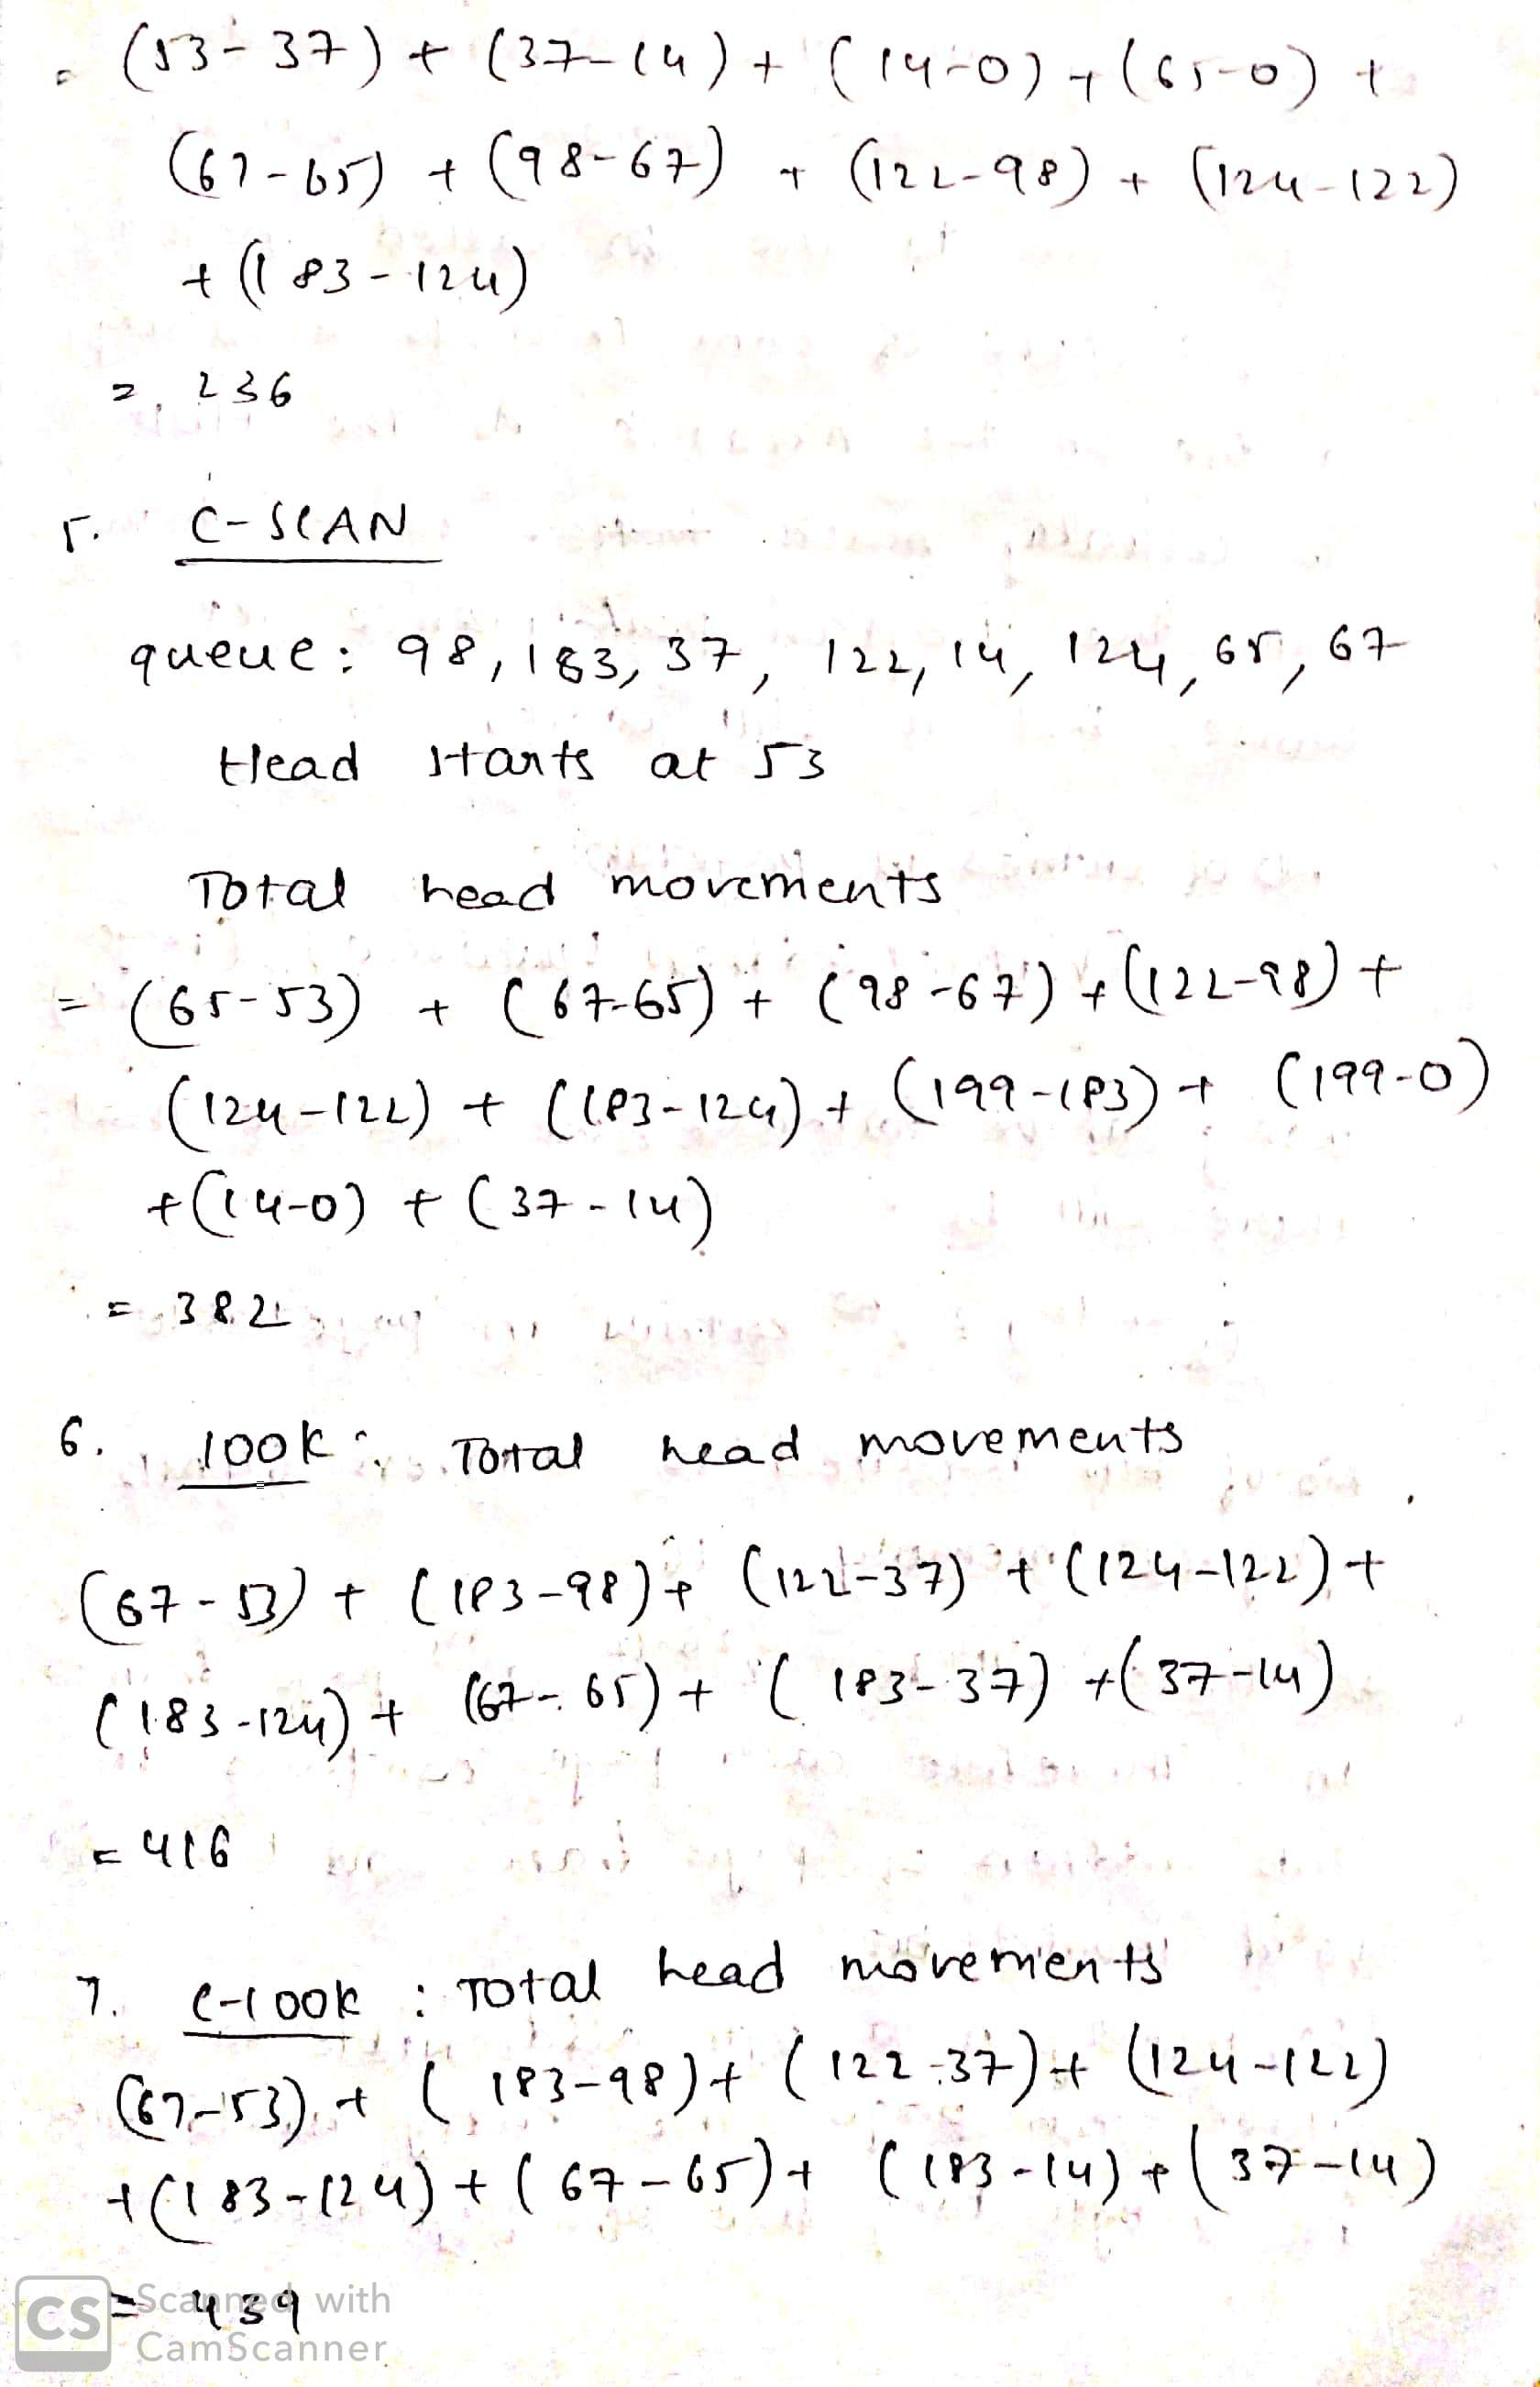 = (53-37) + (37-14) + (14-0) + (65-0) +
(67-65) + (98-67) + (122-98) + (124-122)
+ (183-124)
= 236
5. C-SCAN
queue: 98, 183, 37, 122, 14, 124, 65, 67
Head starts at 53
Total head movements
= (65-53) + (67-65) + (98-67) + (122-98) +
(124-122) + (183-124) + (199-183) + (199-0)
+ (14-0) + (37-14)
= 382
6. look: Total head movements
(67-53) + (183-98) + (122-37) + (124-122) +
(183-124) + (67-65) + (183-37) + (37-14)
= 416
7. C-look : Total head movements
(67-53) + (183-98) + (122-37) + (124-122)
+ (183-124) + (67-65) + (183-14) + (37-14)
= 439
CS Scanned with
CamScanner